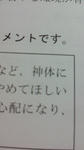 メントです。
など、神体に
やめてほしい
心配になり、